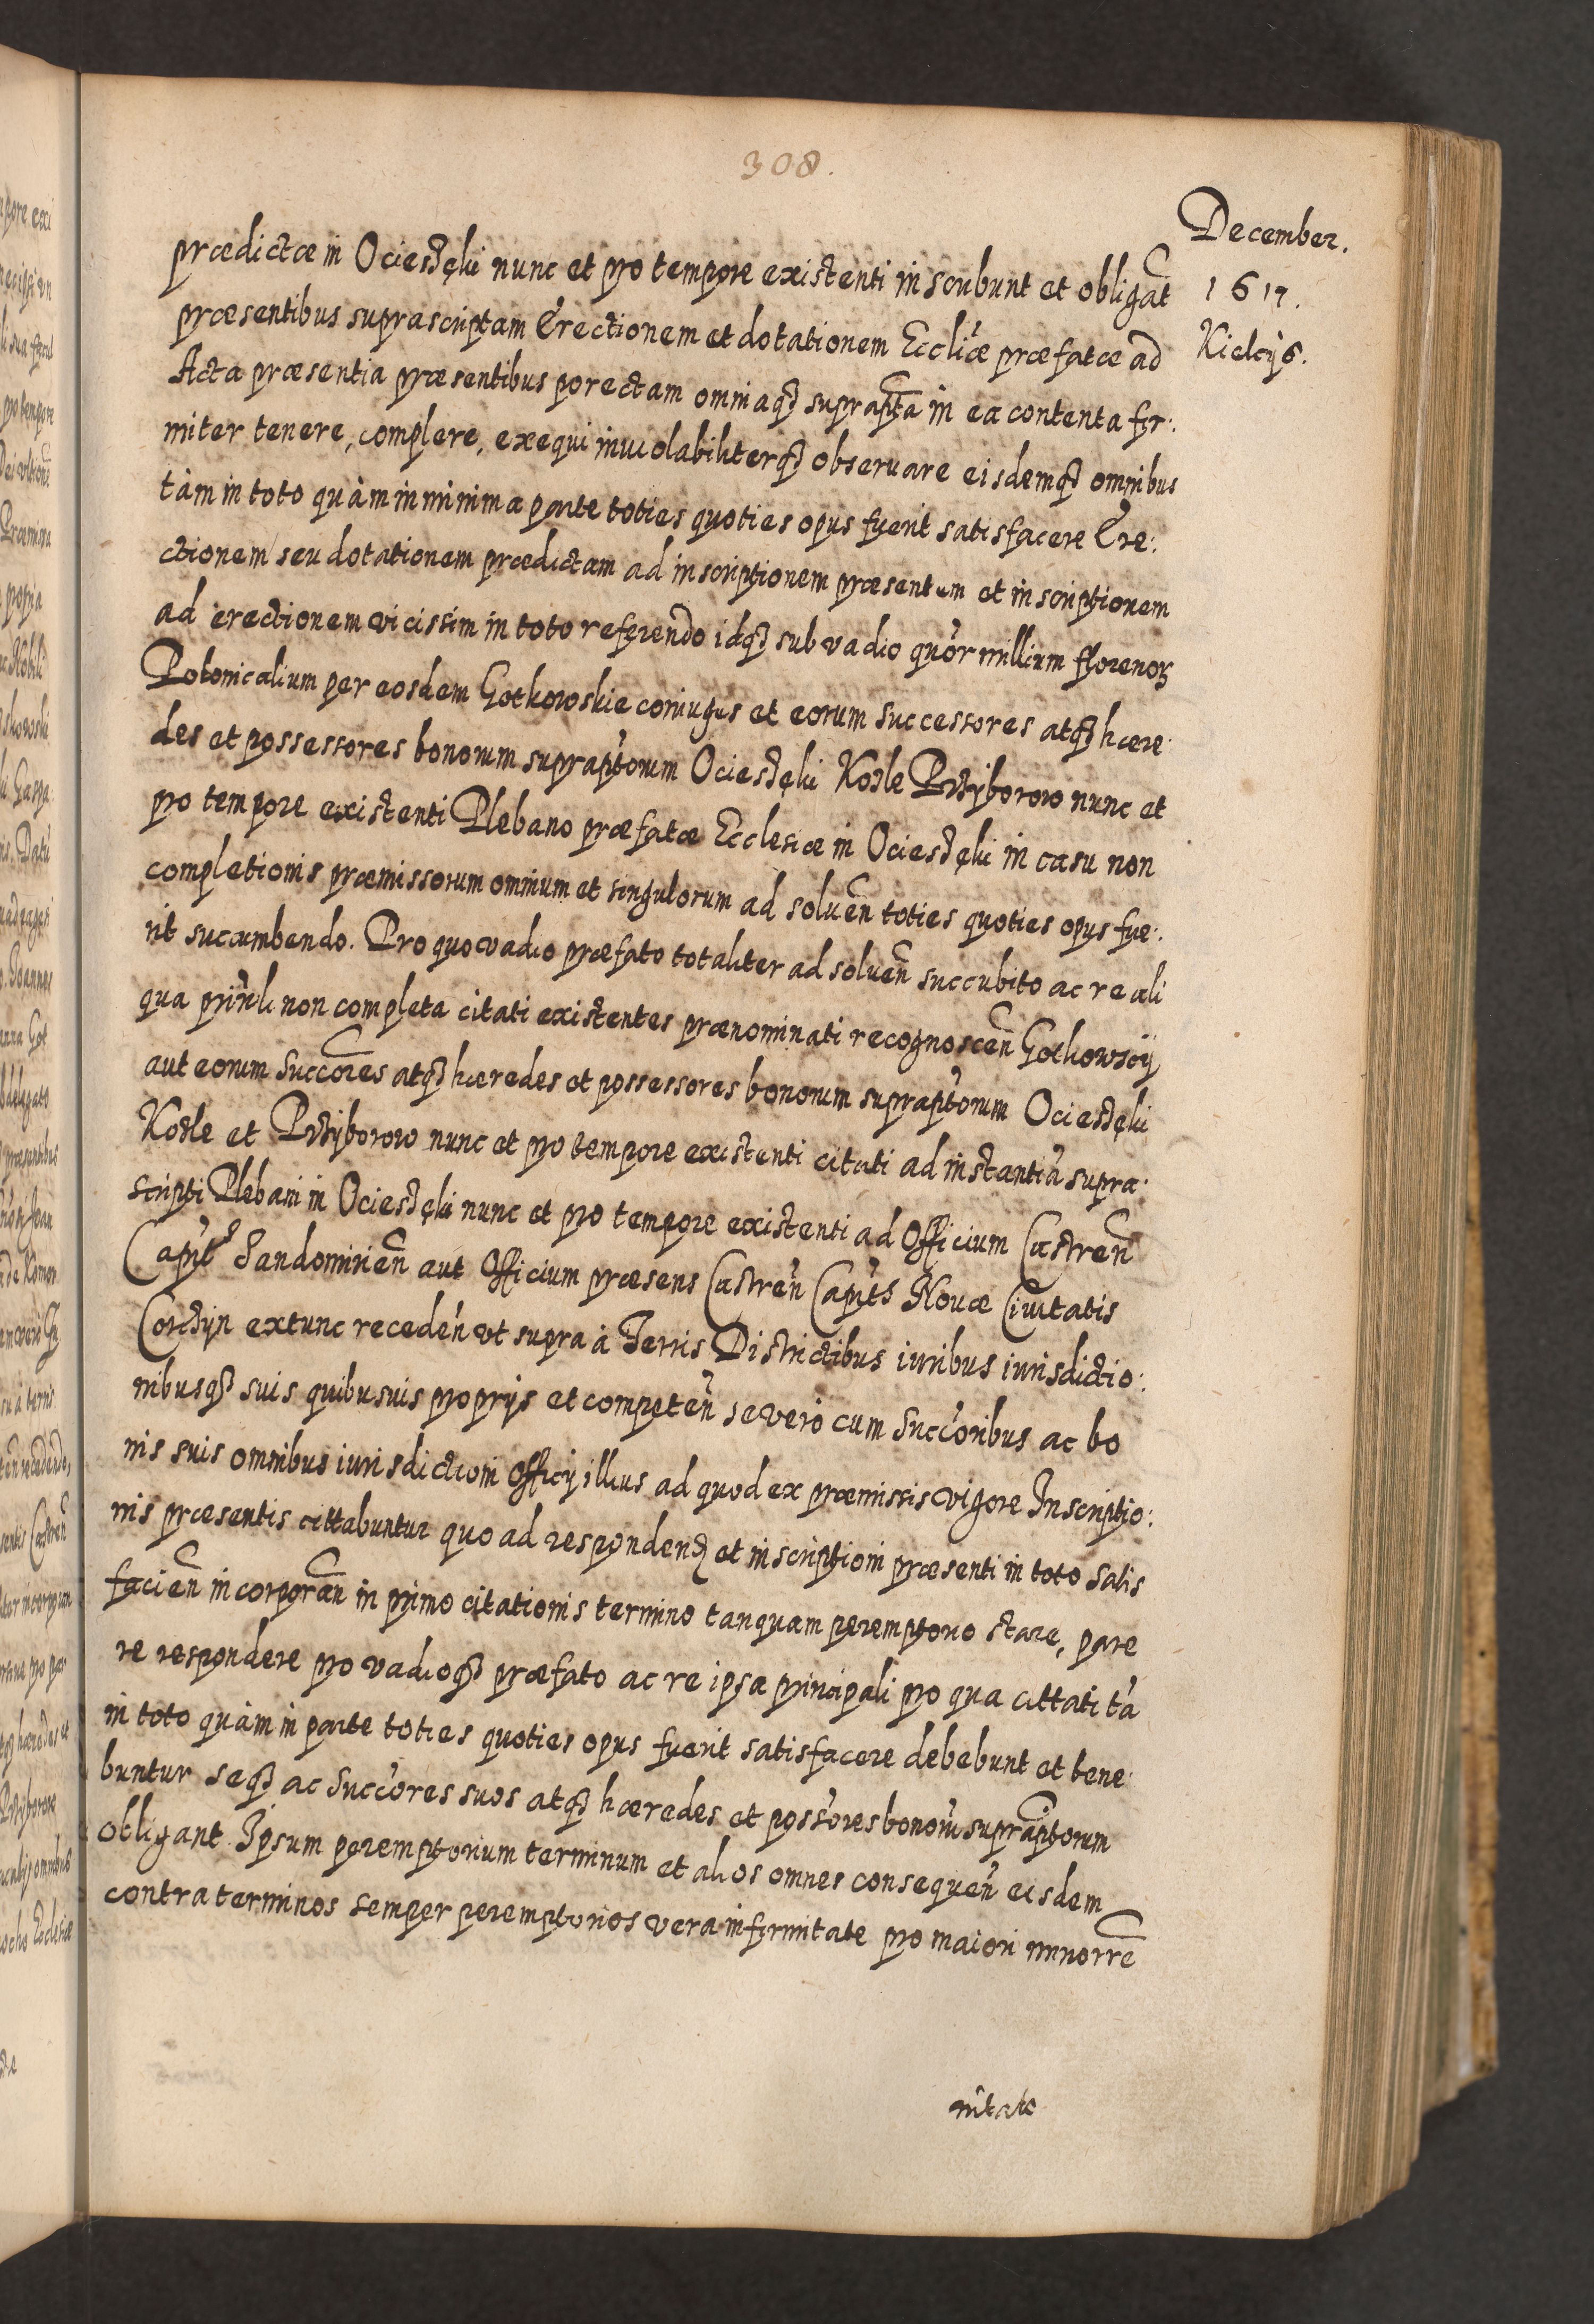 308.
December.
1617.
Kielcys.
prædictæ in Ociesdęki nunc et pro tempore existenti inscribunt et obligāt
præsentibus suprascriptam Erectionem et dotationem Eccliæ præfatæ ad
Acta præsentia præsentibus porectam omniaq3 suprapta in ea contenta fir:
miter tenere, complere, exequi inviolabiliterq3 observare eisdemq3 omnibus
tàm in toto quàm in minima parte toties quoties opus fuerit satisfacere Ere:
ctionem seu dotationem prædictam ad inscriptionem præsentem et inscriptionem
ad erectionem vicissim in toto referendo idq3 sub vadio quor millium florenoꝝ
Polonicalium per eosdem Gotkowskie coniuges et eorum successores atq3 hære:
des et possessores bonorum supraptorum Ociesdęki Kozle Przyborow nunc et
pro tempore existenti Plebano præfatæ Ecclesiæ in Ociesdęki in casu non
completionis præmissorum omnium et singulorum ad soluēn toties quoties opus fue:
rit succumbendo. Pro quo vadio præfato totaliter ad soluēn succubito ac re ali
qua prinli non completa citati existentes prænominati recognoscēn Gotkowscij
aut eorum Succores atq3 hæredes et possessores bonorum supraptorum Ociesdęki
Kozle et Przyborow nunc et pro tempore existenti citati ad instantiā supra:
scripti Plebani in Ociesdęki nunc et pro tempore existenti ad Officium Castrēn
Capitle Sandomiriēn aut Officium præsens Castrēn Capits Novæ Civitatis
Corczyn extunc recedēn vt supra à Terris Districtibus iuribus iurisdictio:
nibusq3 suis quibusuis proprijs et competēn se verò cum Succoribus ac bo
nis suis omnibus iurisdictioni Officij illius ad quod ex præmissis vigore Inscriptio:
nis præsentis cittabuntur quo ad respondenꝝ et inscriptioni præsenti in toto satis
faciēn incorporān in primo citationis termino tanquam peremptorio stare, pare
re respondere pro vadioq3 præfato ac re ipsa principali pro qua cittati tā
in toto quàm in parte toties quoties opus fuerit satisfacere debebunt et tene:
buntur seq3 ac Succores suos atq3 hæredes et possores bonorū supraptorum
obligant. Ipsum peremptorium terminum et alios omnes consequēn eisdem
contra terminos semper peremptorios vera infirmitate pro maiori minorrē
nitate